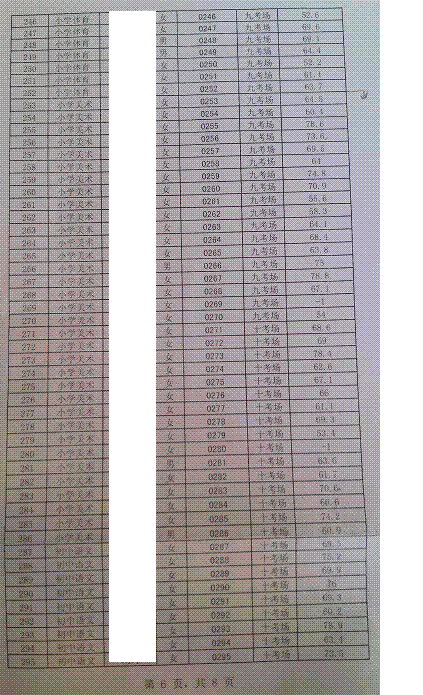 246 小学体育 女 0246 九考场 52.6
247 小学体育 女 0247 九考场 69.6
248 小学体育 男 0248 九考场 69.1
249 小学体育 男 0249 九考场 64.4
250 小学体育 女 0250 九考场 52.2
251 小学体育 女 0251 九考场 61.1
252 小学体育 女 0252 九考场 63.7
253 小学美术 女 0253 九考场 64.5
254 小学美术 女 0254 九考场 60.4
255 小学美术 女 0255 九考场 78.6
256 小学美术 女 0256 九考场 73.6
257 小学美术 女 0257 九考场 69.5
258 小学美术 女 0258 九考场 64
259 小学美术 女 0259 九考场 74.8
260 小学美术 女 0260 九考场 70.9
261 小学美术 女 0261 九考场 55.6
262 小学美术 女 0262 九考场 58.3
263 小学美术 女 0263 九考场 64.1
264 小学美术 女 0264 九考场 68.4
265 小学美术 女 0265 九考场 63.8
266 小学美术 男 0266 九考场 73
267 小学美术 女 0267 九考场 78.8
268 小学美术 女 0268 九考场 67.1
269 小学美术 女 0269 九考场 -1
270 小学美术 女 0270 九考场 54
271 小学美术 女 0271 十考场 68.6
272 小学美术 女 0272 十考场 69
273 小学美术 女 0273 十考场 78.4
274 小学美术 女 0274 十考场 62.6
275 小学美术 女 0275 十考场 67.1
276 小学美术 女 0276 十考场 66
277 小学美术 女 0277 十考场 61.1
278 小学美术 女 0278 十考场 69.3
279 小学美术 女 0279 十考场 53.4
280 小学美术 女 0280 十考场 -1
281 小学美术 男 0281 十考场 63.6
282 小学美术 女 0282 十考场 61.7
283 小学美术 女 0283 十考场 70.6
284 小学美术 女 0284 十考场 60.6
285 小学美术 女 0285 十考场 74.2
286 小学美术 男 0286 十考场 60.9
287 初中语文 女 0287 十考场
288 初中语文 女 0288 十考场
289 初中语文 女 0289 十考场 69.9
290 初中语文 女 0290 十考场 76
291 初中语文 女 0291 十考场 69.3
292 初中语文 女 0292 十考场 60.2
293 初中语文 女 0293 十考场 78.9
294 初中语文 女 0294 十考场 63.4
295 初中语文 女 0295 十考场 73.5
第 6 页，共 8 页